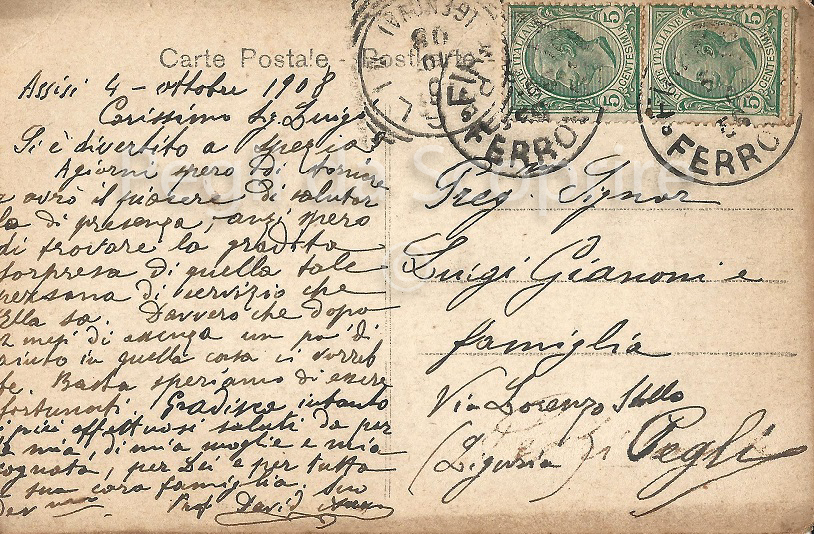 Carte Postale - Postkarte
Assisi 4 - ottobre 1908
Carissimo Sg. Luigi
Si è divertito a Spezia
A giorni spero di tornare
e avrò il piacere di salutar
la di presenza, anzi spero
di trovare la gradita
sorpresa di quella tale
persona di servizio che
Ella sa. Davvero che dopo
2 mesi di assenza un po' di
aiuto in quella casa ci vorreb
be. Basta speriamo di essere
fortunati. Gradisca intanto
i più affettuosi saluti da par
te mia, di mia moglie e mia
cognata, per Lei e per tutta
la sua cara famiglia. Suo
Prof. David
Preg. Signor
Luigi Gianoni e
famiglia
Via Lorenzo Stallo
(Liguria) Pegli
POSTE ITALIANE
CENTESIMI 5
POSTE ITALIANE
CENTESIMI 5
(GENOVA)
FERROV
FERROV
Pegli da Scoprire
©